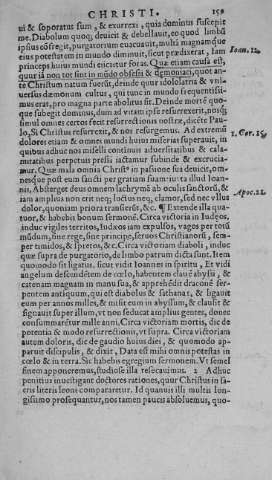 CHRISTI. 158
ui & soporatus sum, & exurrexi, quia dominus suscepit
me. Diabolum quoq; deuicit & debellauit, eo quod limbũ
ipsius cõfregit, purgatorium euacuauit, multi magnamque
eius potestatem in mundo diminuit, sicut prædixerat, Iam
princeps huius mundi eiicietur foras. Que etiam causa est,
Ioan. 12.
quur iã non tot sint in mũdo obsessi & demoniati, quot an-
te Christum natum fuerũt, deinde quur idololatria & vni-
uersus demonum cultus, qui tunc in mundo frequentissi-
mus erat, pro magna parte abolitus sit. Deinde morte quo-
que subegit dominus, dum ad vitam ipse resurrexerit, nosq;
simul omnes certos fecit resurrectionis nostre, dicẽte Pau-
lo, Si Christus resurrexit, & nos resurgemus. Ad extremũ
1. Cor. 15.
dolore: etiam & omnes mundi huius miserias superauit, in
quibus adhuc nos misellì continuis aduersitatibus & cala-
mitatibus perpetuis pressi iactamur subinde & excrucia-
mur. Quæ mala omnia Christus in passione sua deuicit, om-
nesque post eum sancti per gratiam suam iuxta illud Ioan-
nis, Absterget deus omnem lachrymã ab oculis sanctorũ, &
Apoc. 21.
iam amplius non erit neq; luctus neq; clamor, sed nec vllus
dolor, quoniam priora transierũt, &c. ¶ Extende illa qua-
tuor, & habebis bonum sermonẽ. Circa victoria in Iudẽos,
induc vigiles territos, Iudæos iam expulsos, vagos per totũ
mũdum, sine rege, sine principe, seruos Christianorũ, sem-
per timidos, & spretos, &c. Circa victoriam diaboli, induc
que supra de purgatorio, de limbo patrum dicta sunt. Item
quomodo sit ligatus, sicut vidit Ioannes in spiritu, Et vidi
angelum descendẽtem de cœlo, habentem clauẽ abyssi, &
catenam magnam in manu sua, & apprehẽdit draconẽ ser-
pentem antiquum, qui est diabolus & sathanas, & ligauit
eum per annos milles, & misit eum in abyssum, & clausit &
signauit super illum, vt non seducat amplius gentes, donec
consummarẽtur mille anni. Circa victoriam mortis, dic de
potentia & modo resurrectionis, vt supra. Circa victoriam
autem doloris, dic de gaudio huius diei, & quomodo ap-
paruit discipulis, & dixit, Data est mihi omnis potestas in
cœlo & in terra. Sic habebis egregium sermonem. Vt semel
finem apponeremus, studiose illa resecauimus. 2 Adhuc
ponitius inuestigant doctores rationes, quur Christus in sa-
cris literis leoni compararetur. Id quanuis illi multis lon-
gissimo prosequantur, nos tamen paucis absoluemus, quo-